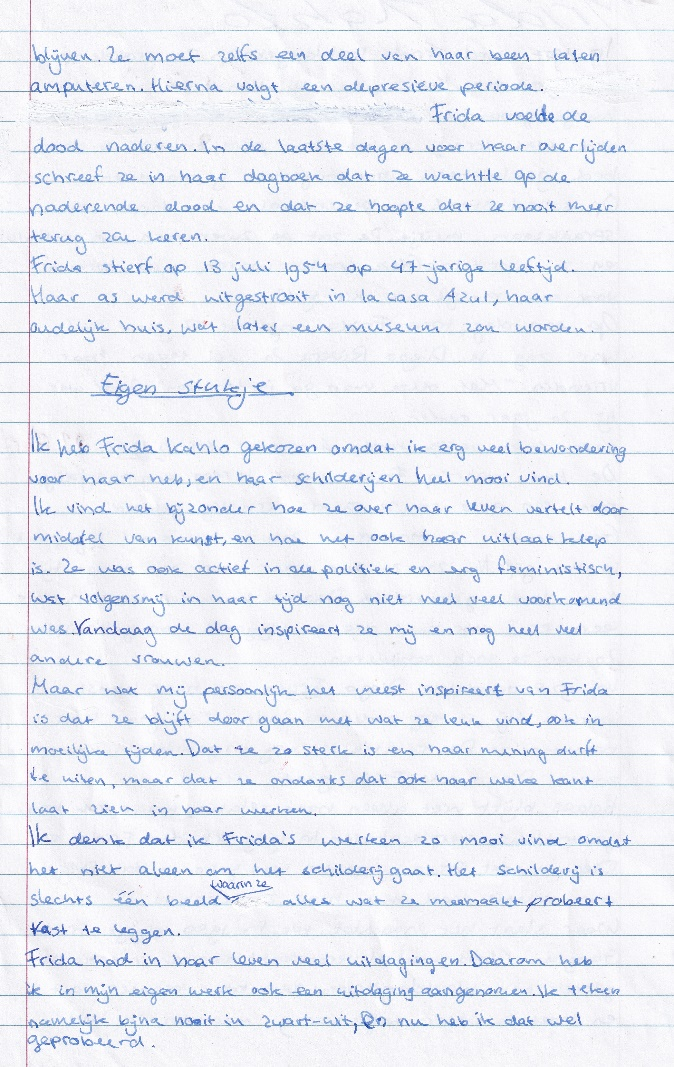 blijven. Ze moet zelfs een deel van haar been laten
amputeren. Hierna volgt een depresieve periode.
Frida voelde de
dood naderen. In de laatste dagen voor haar overlijden
schreef ze in haar dagboek dat ze wachtte op de
naderende dood en dat ze hoopte dat ze nooit meer
terug zou keren.
Frida stierf op 13 juli 1954 op 47-jarige leeftijd.
Haar as werd uitgestrooit in la casa Azul, haar
oudelijk huis, wat later een museum zou worden.
Eigen stukje
Ik heb Frida Kahlo gekozen omdat ik erg veel bewondering
voor haar heb, en haar schilderijen heel mooi vind.
Ik vind het bijzonder hoe ze over haar leven vertelt door
middel van kunst, en hoe het ook haar uitlaat klep
is. Ze was ook actief in de politiek en erg feministisch,
wat volgensmij in haar tijd nog niet heel veel voorkomend
was. Vandaag de dag inspireert ze mij en nog heel veel
andere vrouwen.
Maar wat mij persoonlijk het meest inspireert van Frida
is dat ze blijft door gaan met wat ze leuk vind, ook in
moeilijke tijden. Dat ze zo sterk is en haar mening durft
te uiten, maar dat ze ondanks dat ook haar weke kant
laat zien in haar werken.
Ik denk dat ik Frida's werken zo mooi vind omdat
het niet alleen om het schilderij gaat. Het schilderij is
slechts één beeld waarin ze alles wat ze meemaakt probeert
vast te leggen.
Frida had in haar leven veel uitdagingen. Daarom heb
ik in mijn eigen werk ook een uitdaging aangenomen. Ik teken
namelijk bijna nooit in zwart-wit, en nu heb ik dat wel
geprobeerd.